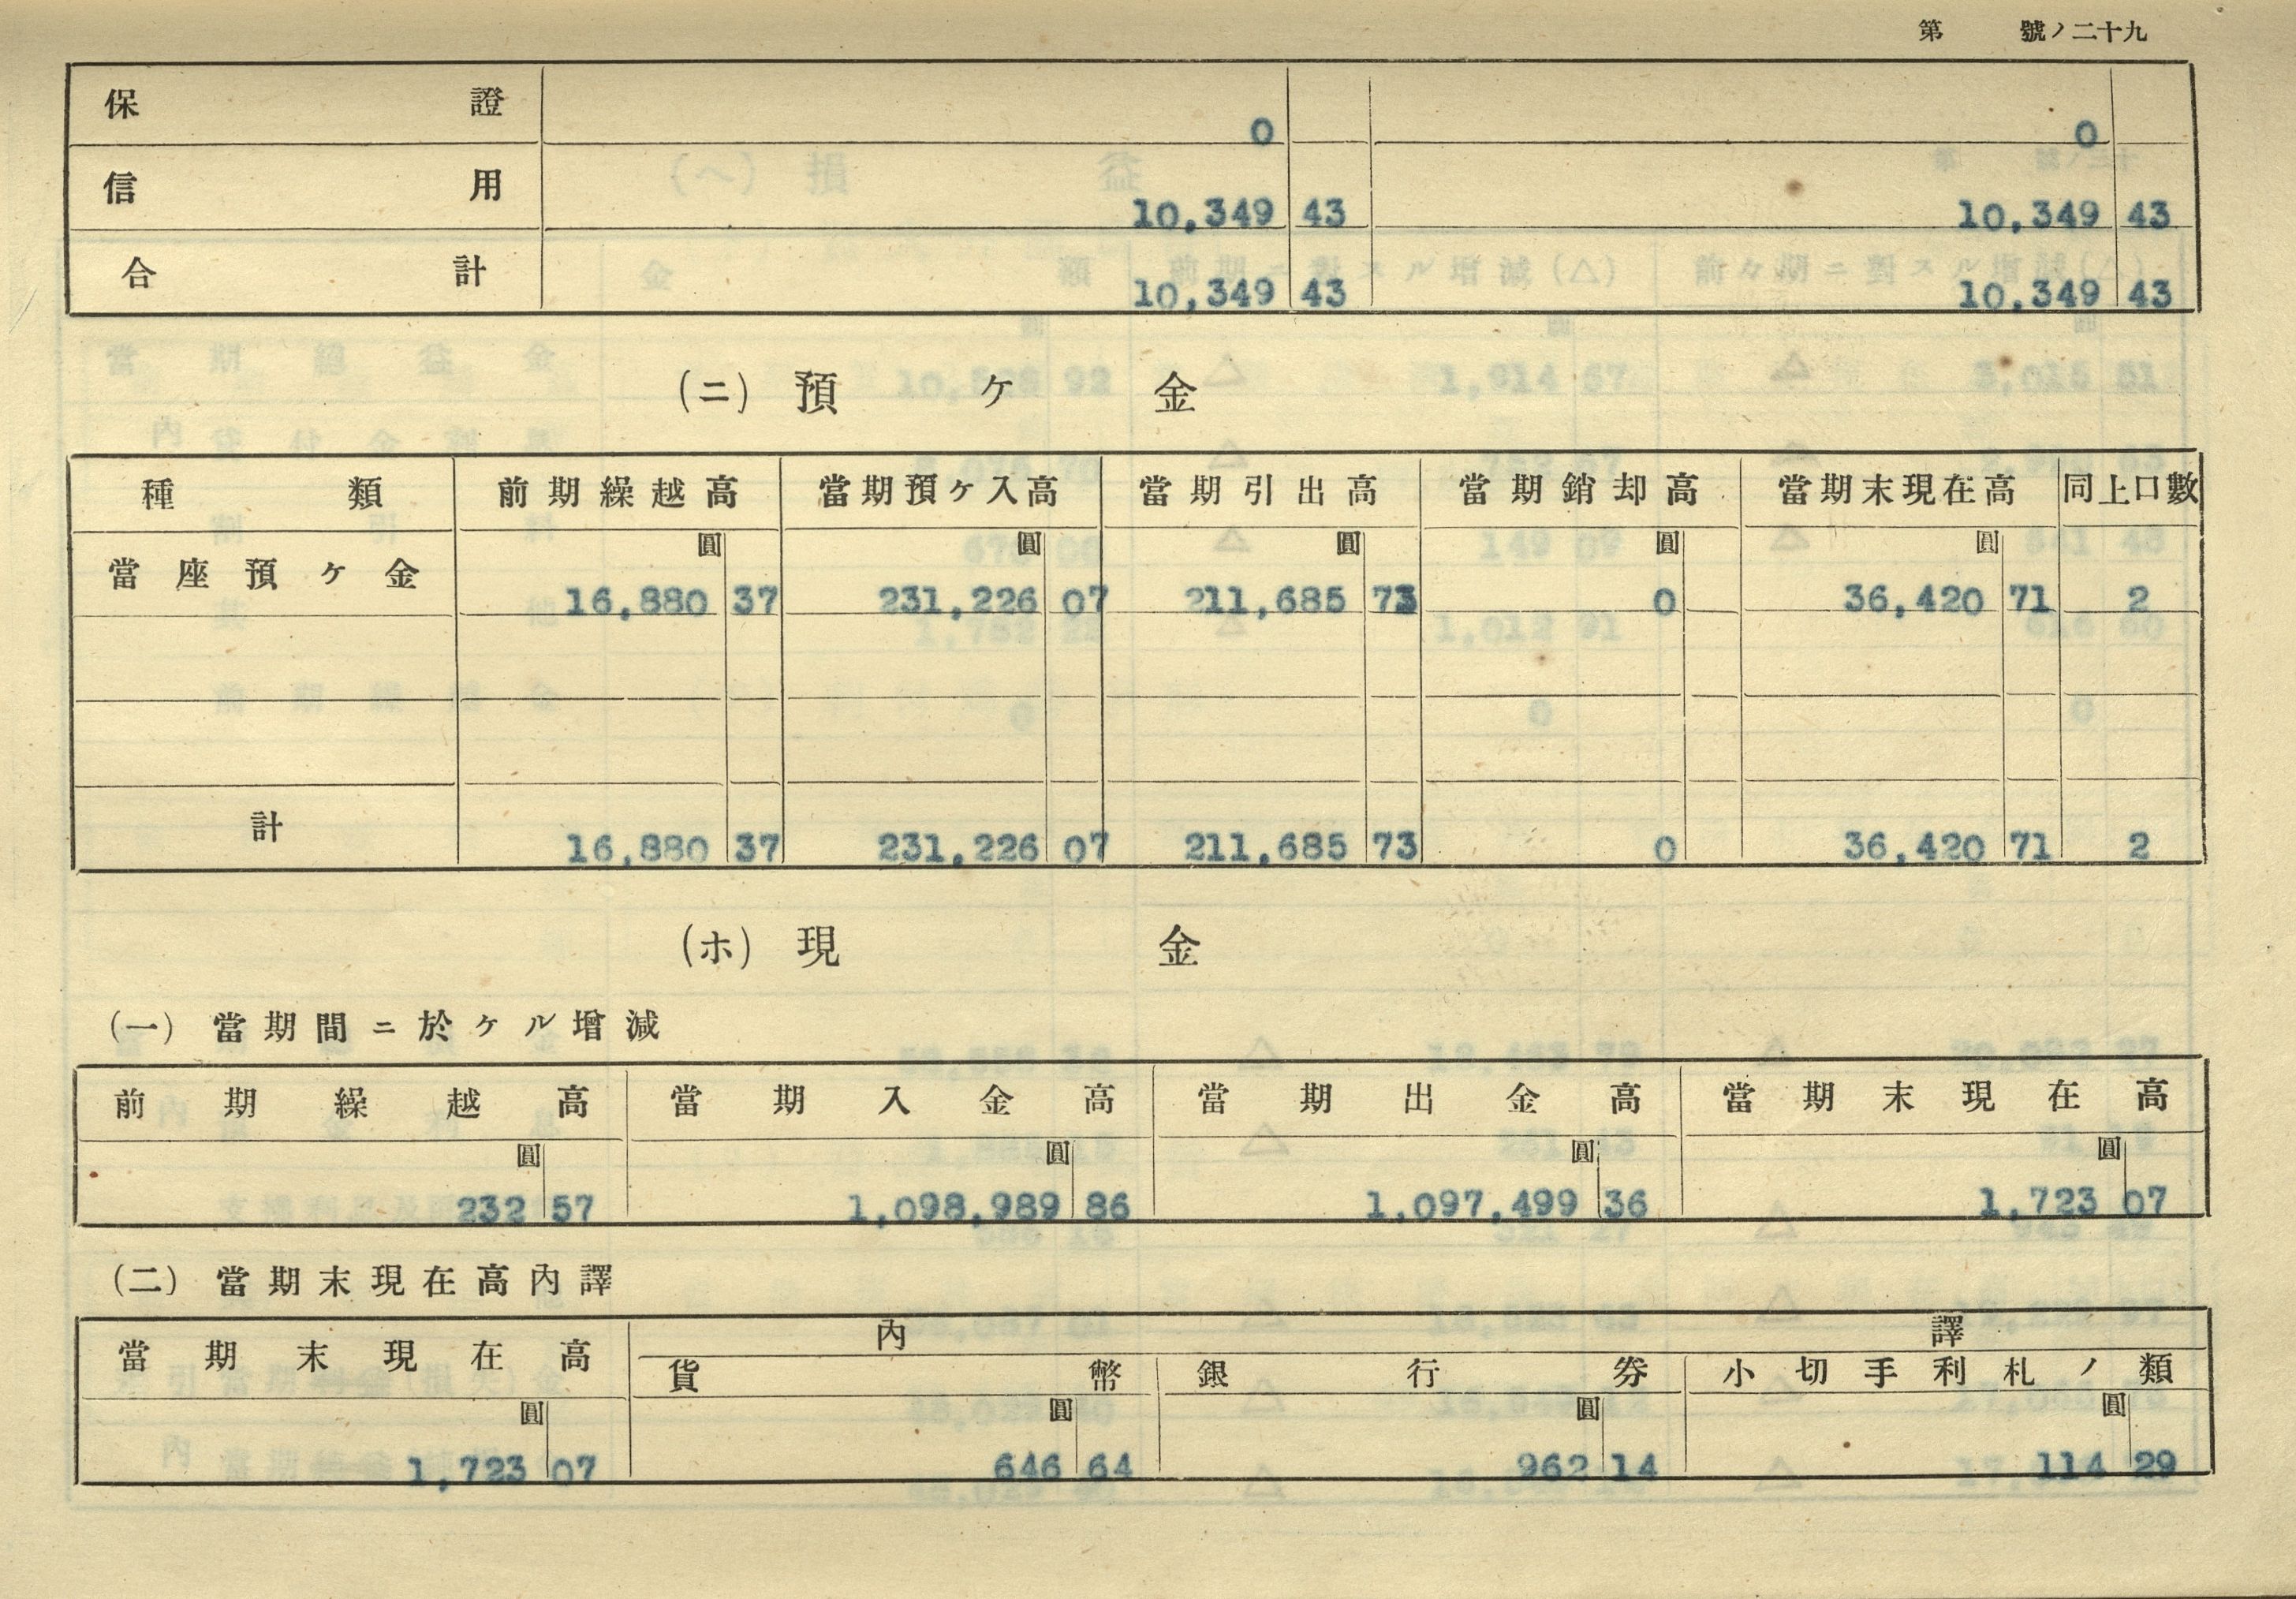 第 號ノ二十九
保證 0 0
信用 10,349 43 10,349 43
合計 10,349 43 10,349 43
(ニ) 預ケ金
種類 前期繰越高 當期預ケ入高 當期引出高 當期銷却高 當期末現在高 同上口數
圓 圓 圓 圓 圓
當座預ケ金 16,880 37 231,226 07 211,685 73 0 36,420 71 2
計 16,880 37 231,226 07 211,685 73 0 36,420 71 2
(ホ) 現金
(一) 當期間ニ於ケル增減
前期繰越高 當期入金高 當期出金高 當期末現在高
圓 圓 圓 圓
232 57 1,098,989 86 1,097,499 36 1,723 07
(二) 當期末現在高內譯
當期末現在高 內譯
貨幣 銀行券 小切手利札ノ類
圓 圓 圓 圓
1,723 07 646 64 962 14 114 29